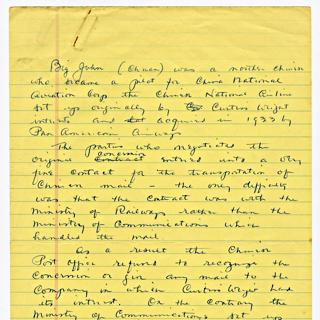 Big John (Chinese) was a northern Chinese
who became a pilot for China National
Aviation Corp the Chinese National Airline
set up originally by Curtiss Wright
interests and acquired in 1933 by
Pan American Airways
The parties who negotiated the
original concession entered into a very
fine contract for the transportation of
Chinese mail - the only difficulty
was that the contract was with the
Ministry of Railways rather than the
Ministry of Communications which
handled the mail
As a result the Chinese
Post Office refused to recognize the
concession or give any mail to the
company in which Curtiss Wright had
its interest. On the contrary the
Ministry of Communications set up